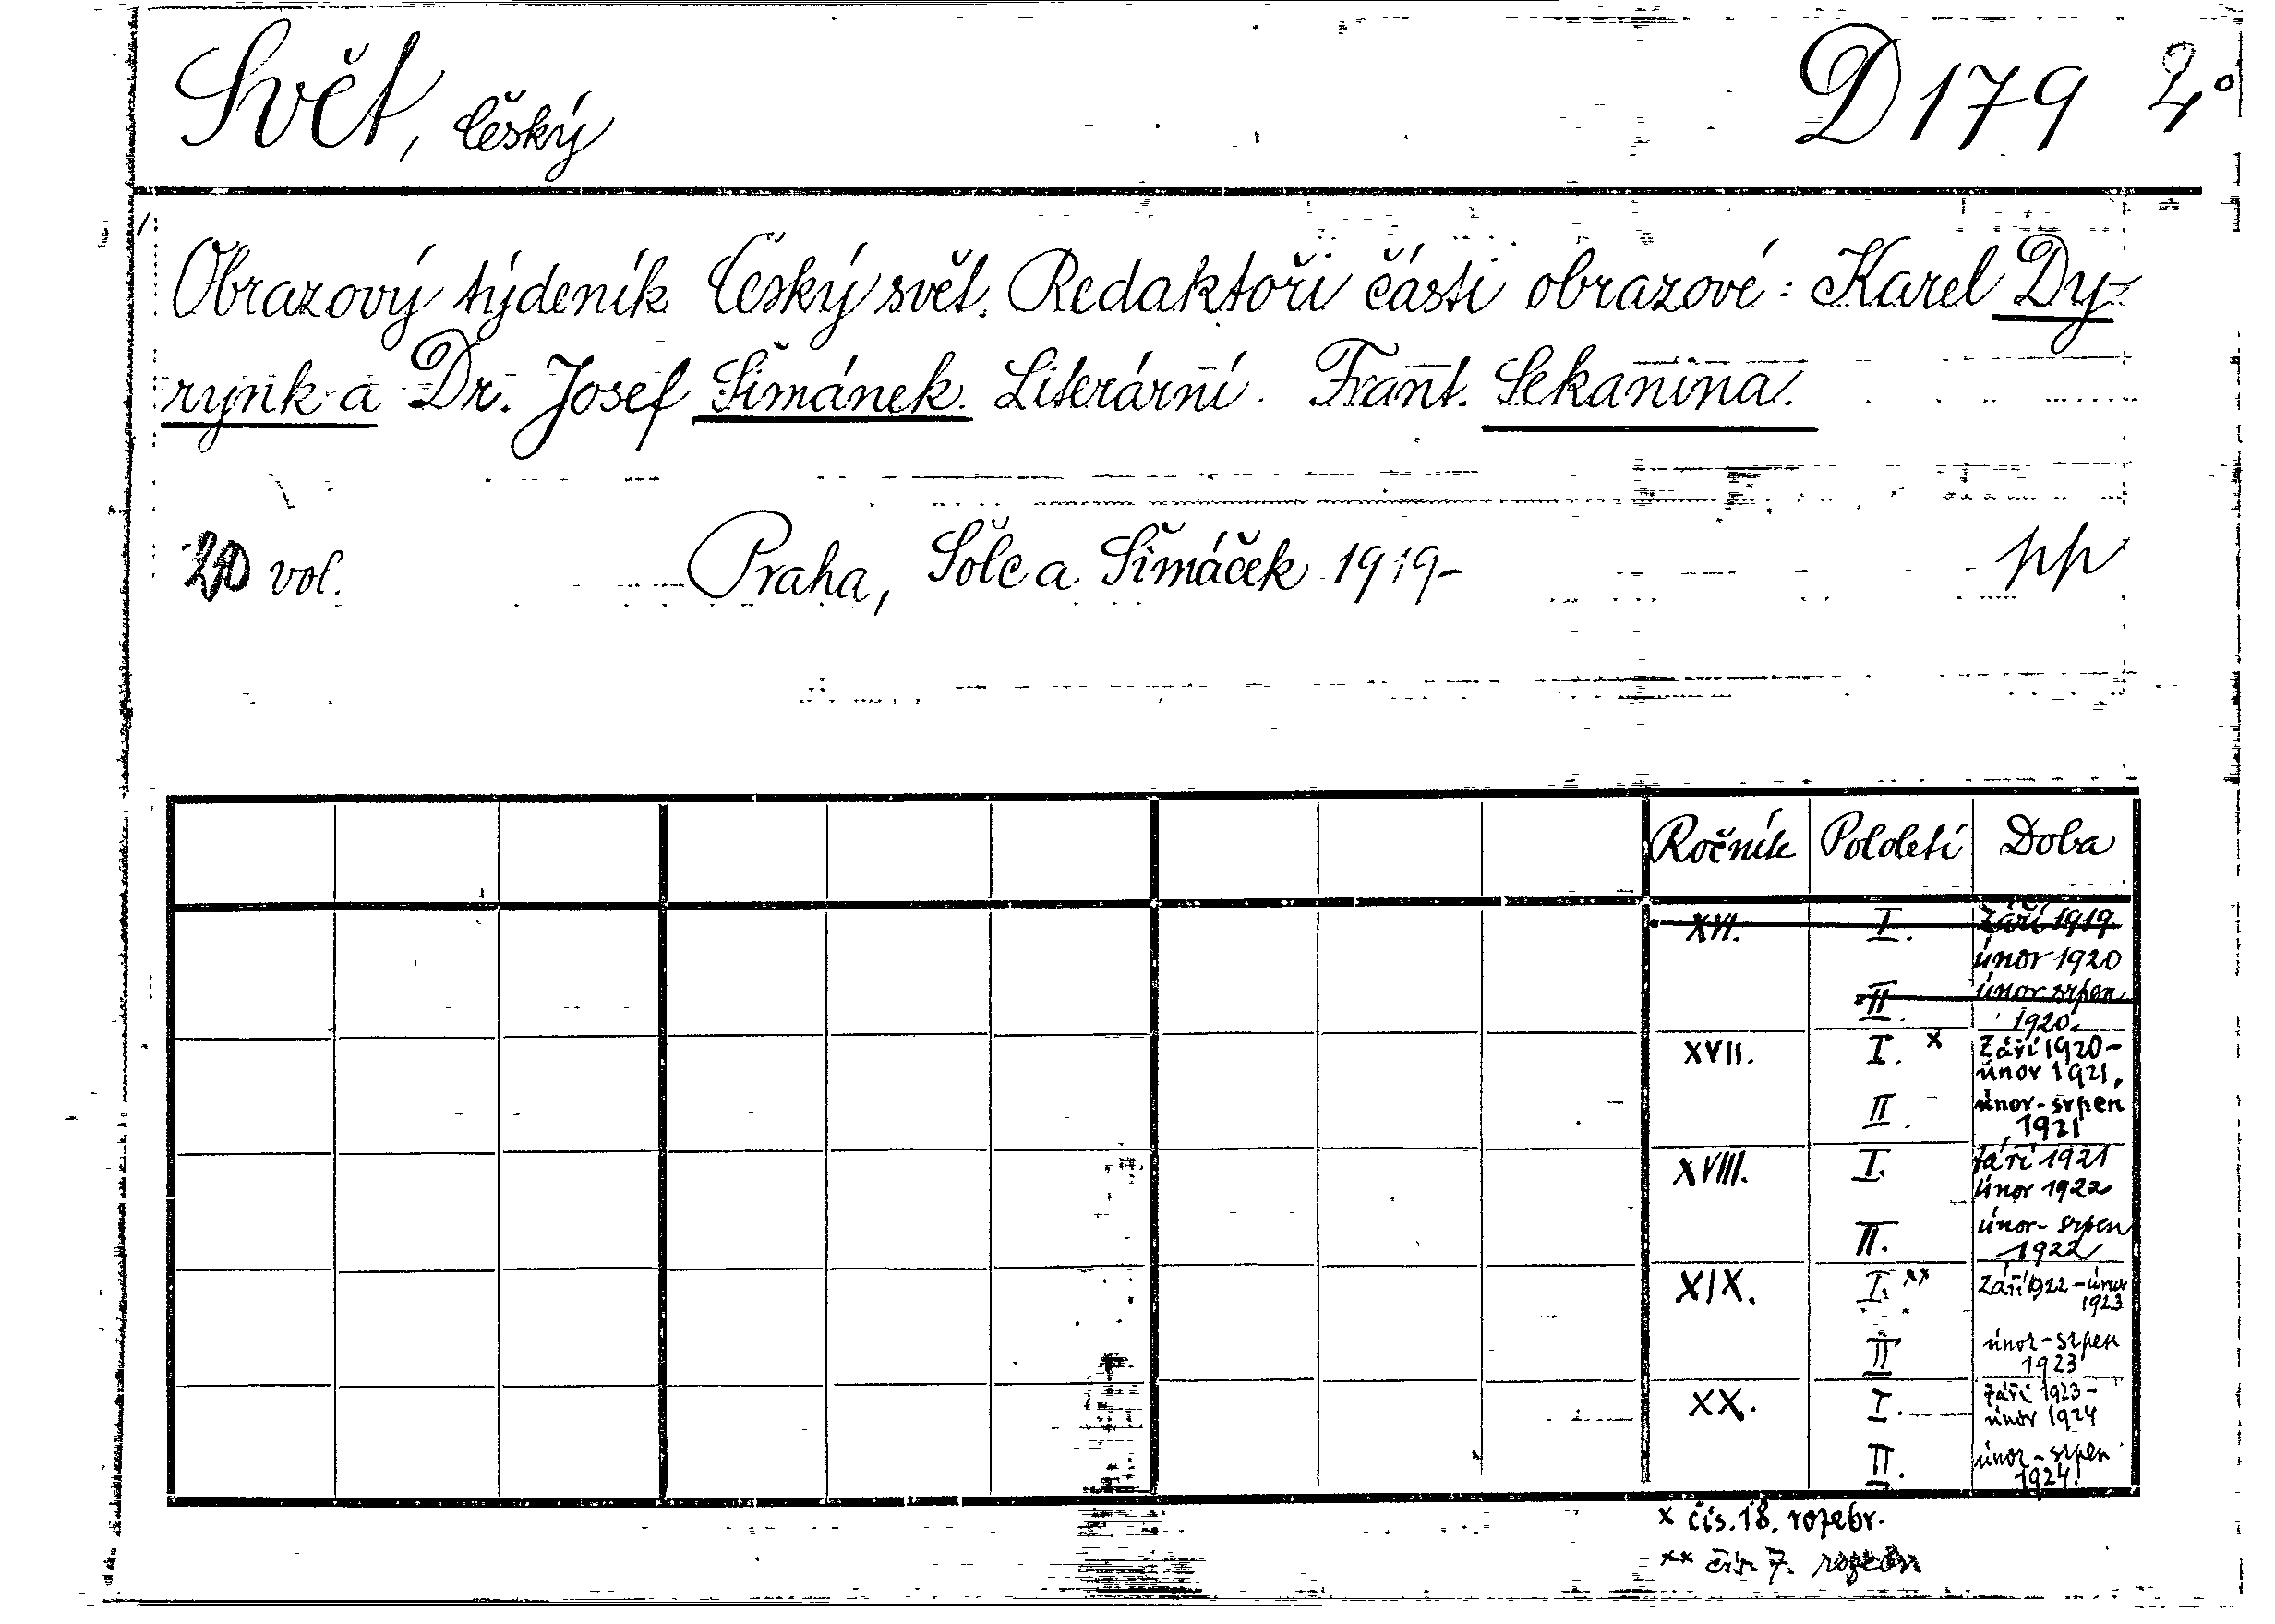 Svět, Český D 179 2°
Obrazový týdeník Český svět. Redaktoři části obrazové: Karel Dy-
rynk a Dr. Josef Šimánek. Literární. Frant. Sekanina.
vol. Praha, Šolc a Šimáček 1919- pp
Ročník Pololetí Doba
XVI. I. Září 1919
únor 1920
II. únor srpen
1920.
XVII. I. x Září 1920-
únor 1921.
II. únor-srpen
1921
XVIII. I. Září 1921
únor 1922
II. únor-srpen
1922
XIX. I. xx Září 1922-únor
1923
II únor-srpen
1923
XX. I. Září 1923-
únor 1924
II. únor-srpen
1924.
x čís. 18. rozebr.
xx čís. 7. rozebr